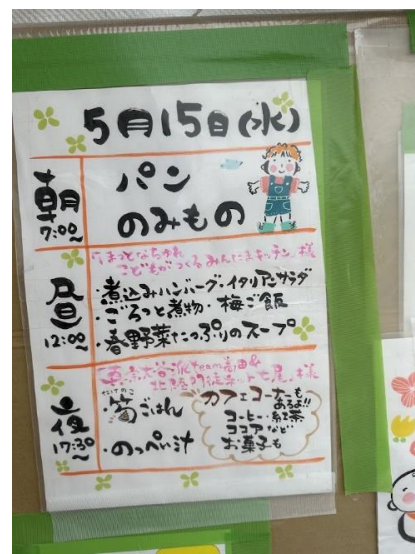 5月15日(水)
朝
7:00~
パン
のみもの
昼
12:00~
こどもがつくる みんたまキッチン」様
・煮込みハンバーグ・イタリアンサラダ
・ごろっと煮物・梅ご飯
・春野菜たっぷりのスープ
夜
17:30~
大谷派team高田&
様
たけのこ
・筍ごはん
・のっぺい汁
カフェコーナーも
あるよ!!
コーヒー・紅茶
ココアなど
お菓子も